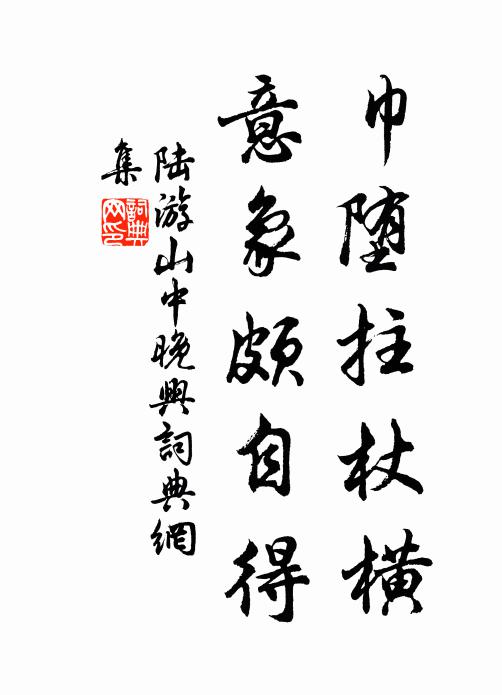 巾堕拄杖橫
意象頗自得
陆游山中晚興詞典網
集
詞典
网印